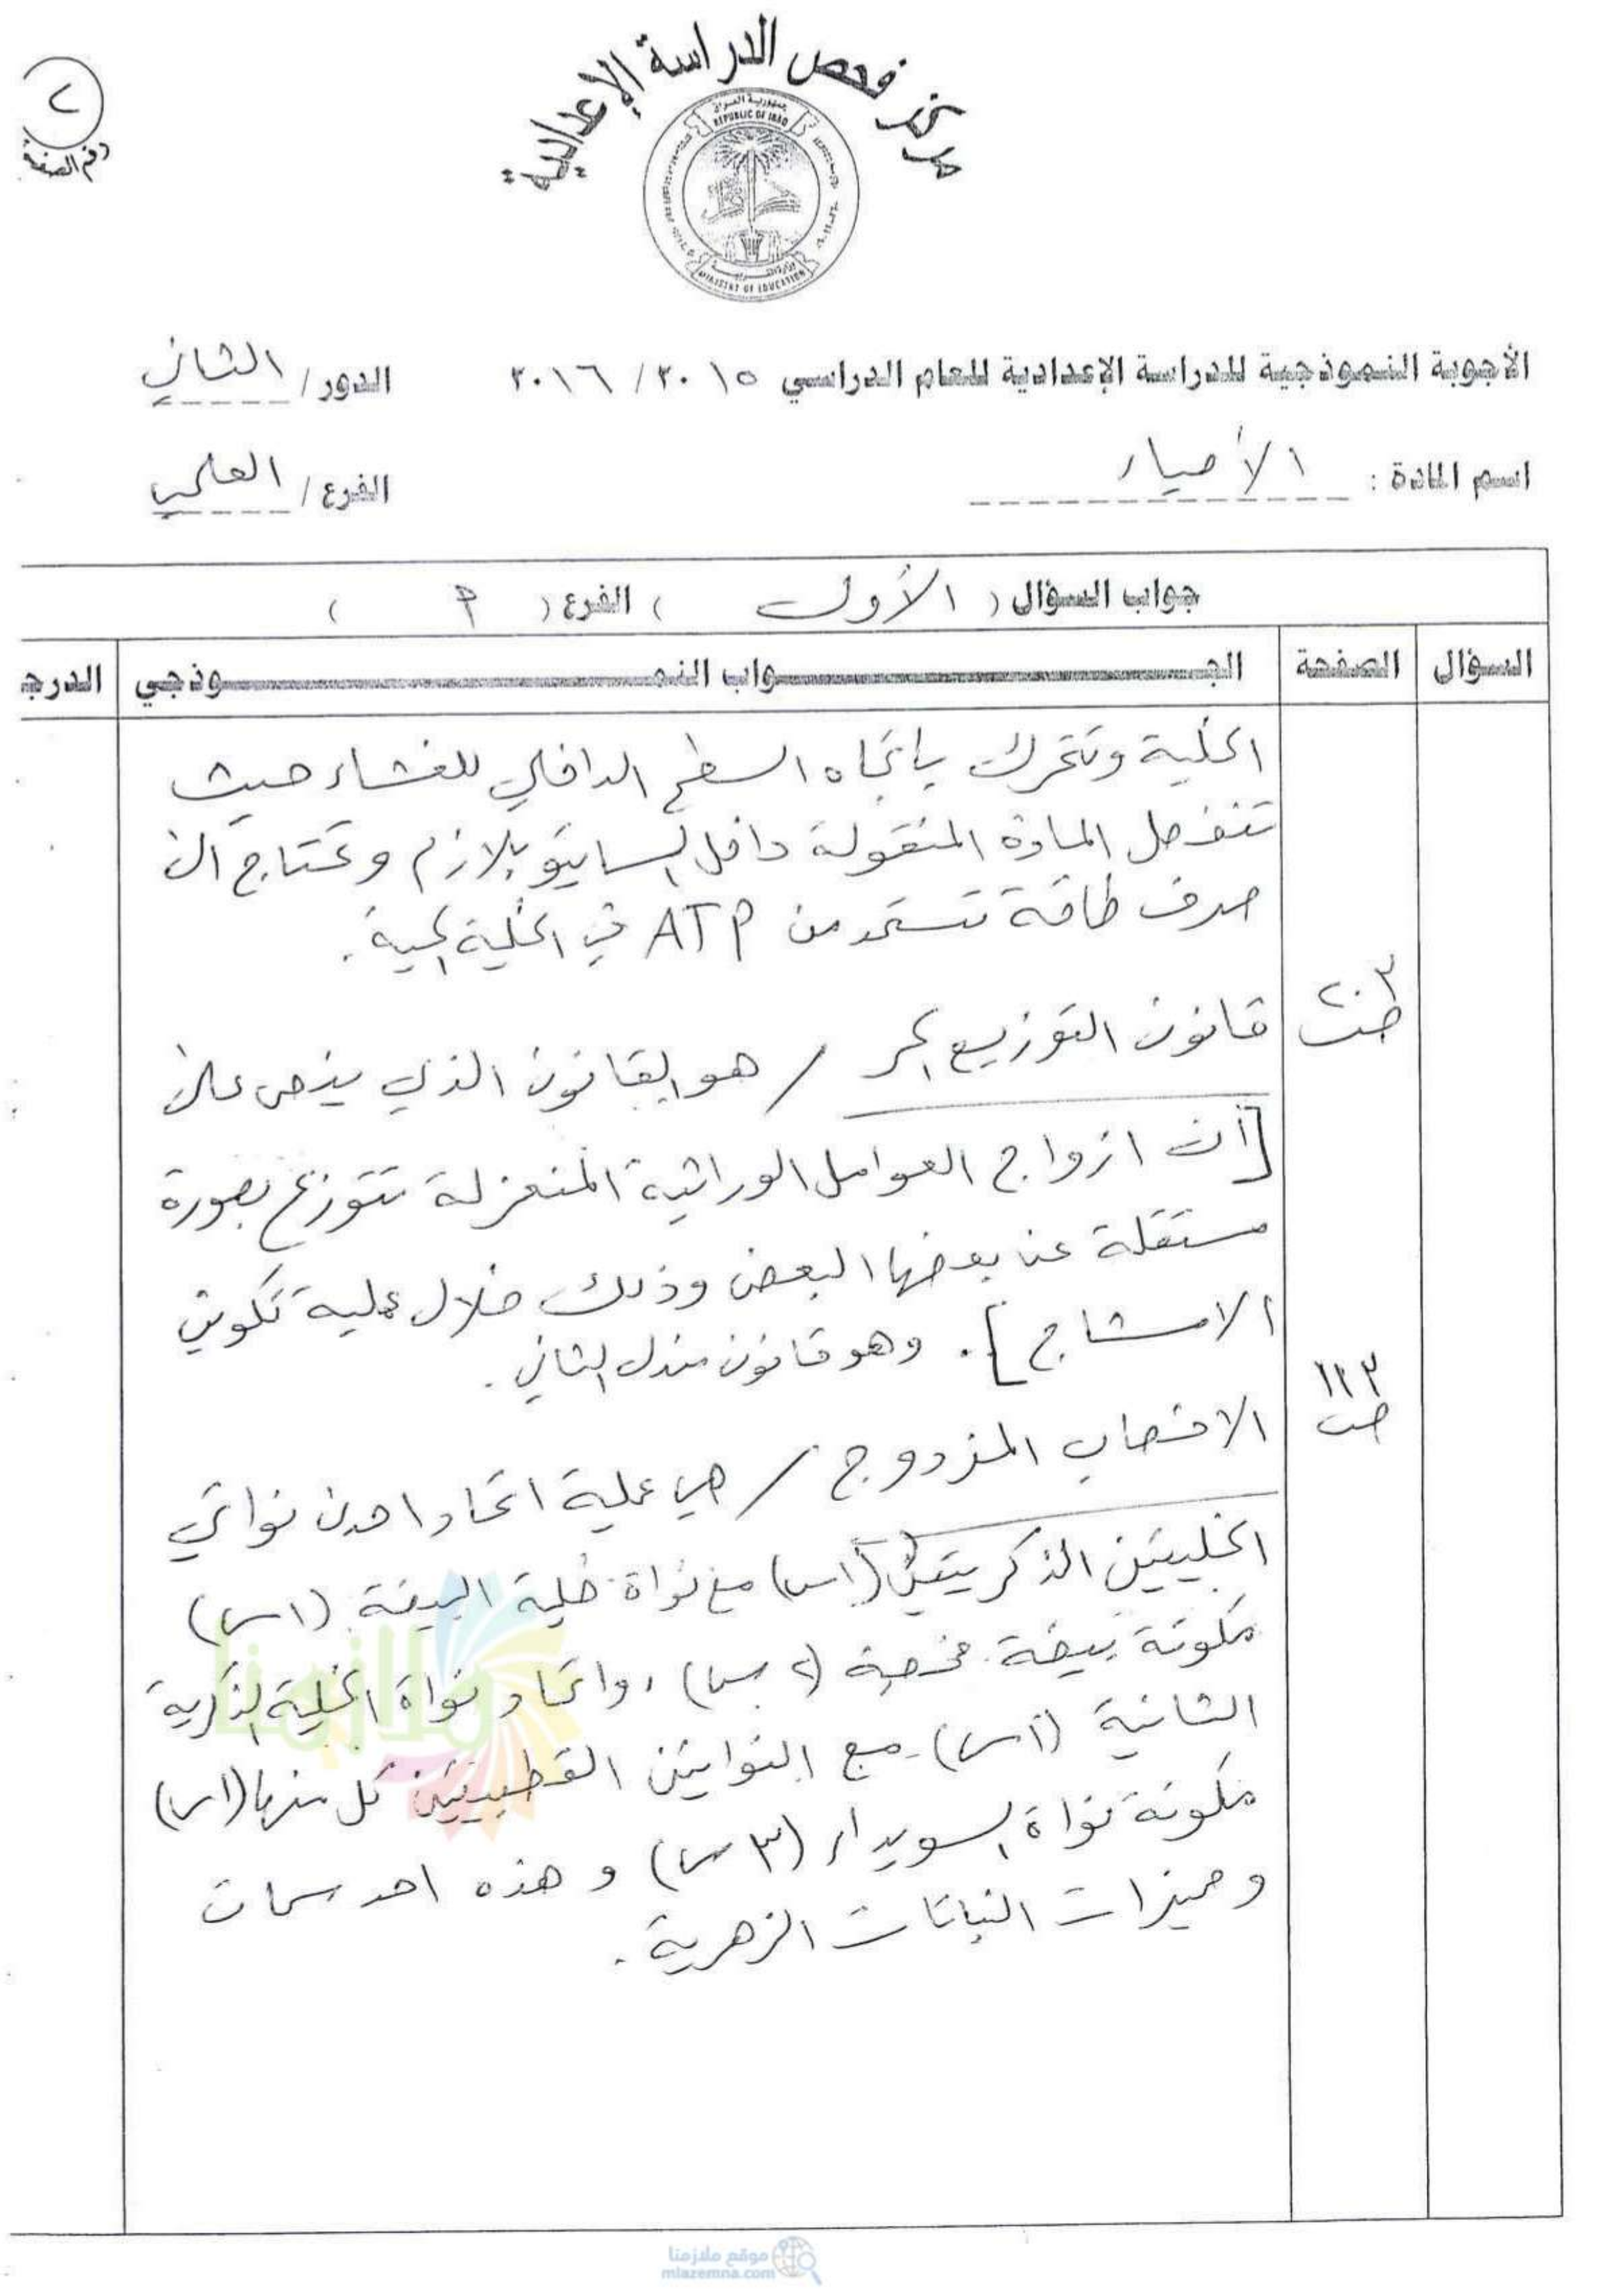 مركز فحص الدراسة الإعدادية
٢
رقم الصفحة
جمهورية العراق
REPUBLIC OF IRAQ
وزارة التربية
MINISTRY OF EDUCATION
الأجوبة النموذجية للدراسة الإعدادية للعام الدراسي ٢٠١٥ / ٢٠١٦ الدور / الثاني
اسم المادة : الأحياء الفرع / العلمي
جواب السؤال ( الأول ) الفرع ( P )
السؤال الصفحة الجـــواب النمـــوذجي الدرج
الخلية وتتحرك باتجاه السطح الداخلي للغشاء حيث
تنفصل المادة المنقولة داخل السايتوبلازم وتحتاج الى
صرف طاقة تستمد من ATP في الخلية الحية .
ص٢٠٣ قانون التوزيع الحر / هو القانون الذي ينص على
[ أن ازواج العوامل الوراثية المنعزلة تتوزع بصورة
مستقلة عن بعضها البعض وذلك خلال عملية تكوين
الامشاج ] . وهو قانون مندل الثاني .
ص١٢٣ الاخصاب المزدوج / هي عملية اتحاد احدى نواتي
الخليتين الذكريتين (١س) مع نواة خلية البيضة (١س)
مكونة بيضة مخصبة (٢س) ، واتحاد نواة الخلية الذكرية
الثانية (١س) مع النواتين القطبيتين كل منها (١س)
مكونة نواة السويداء (٣س) وهذه احد سمات
ومميزات النباتات الزهرية .
ملازمنا
موقع ملازمنا
mlazemna.com